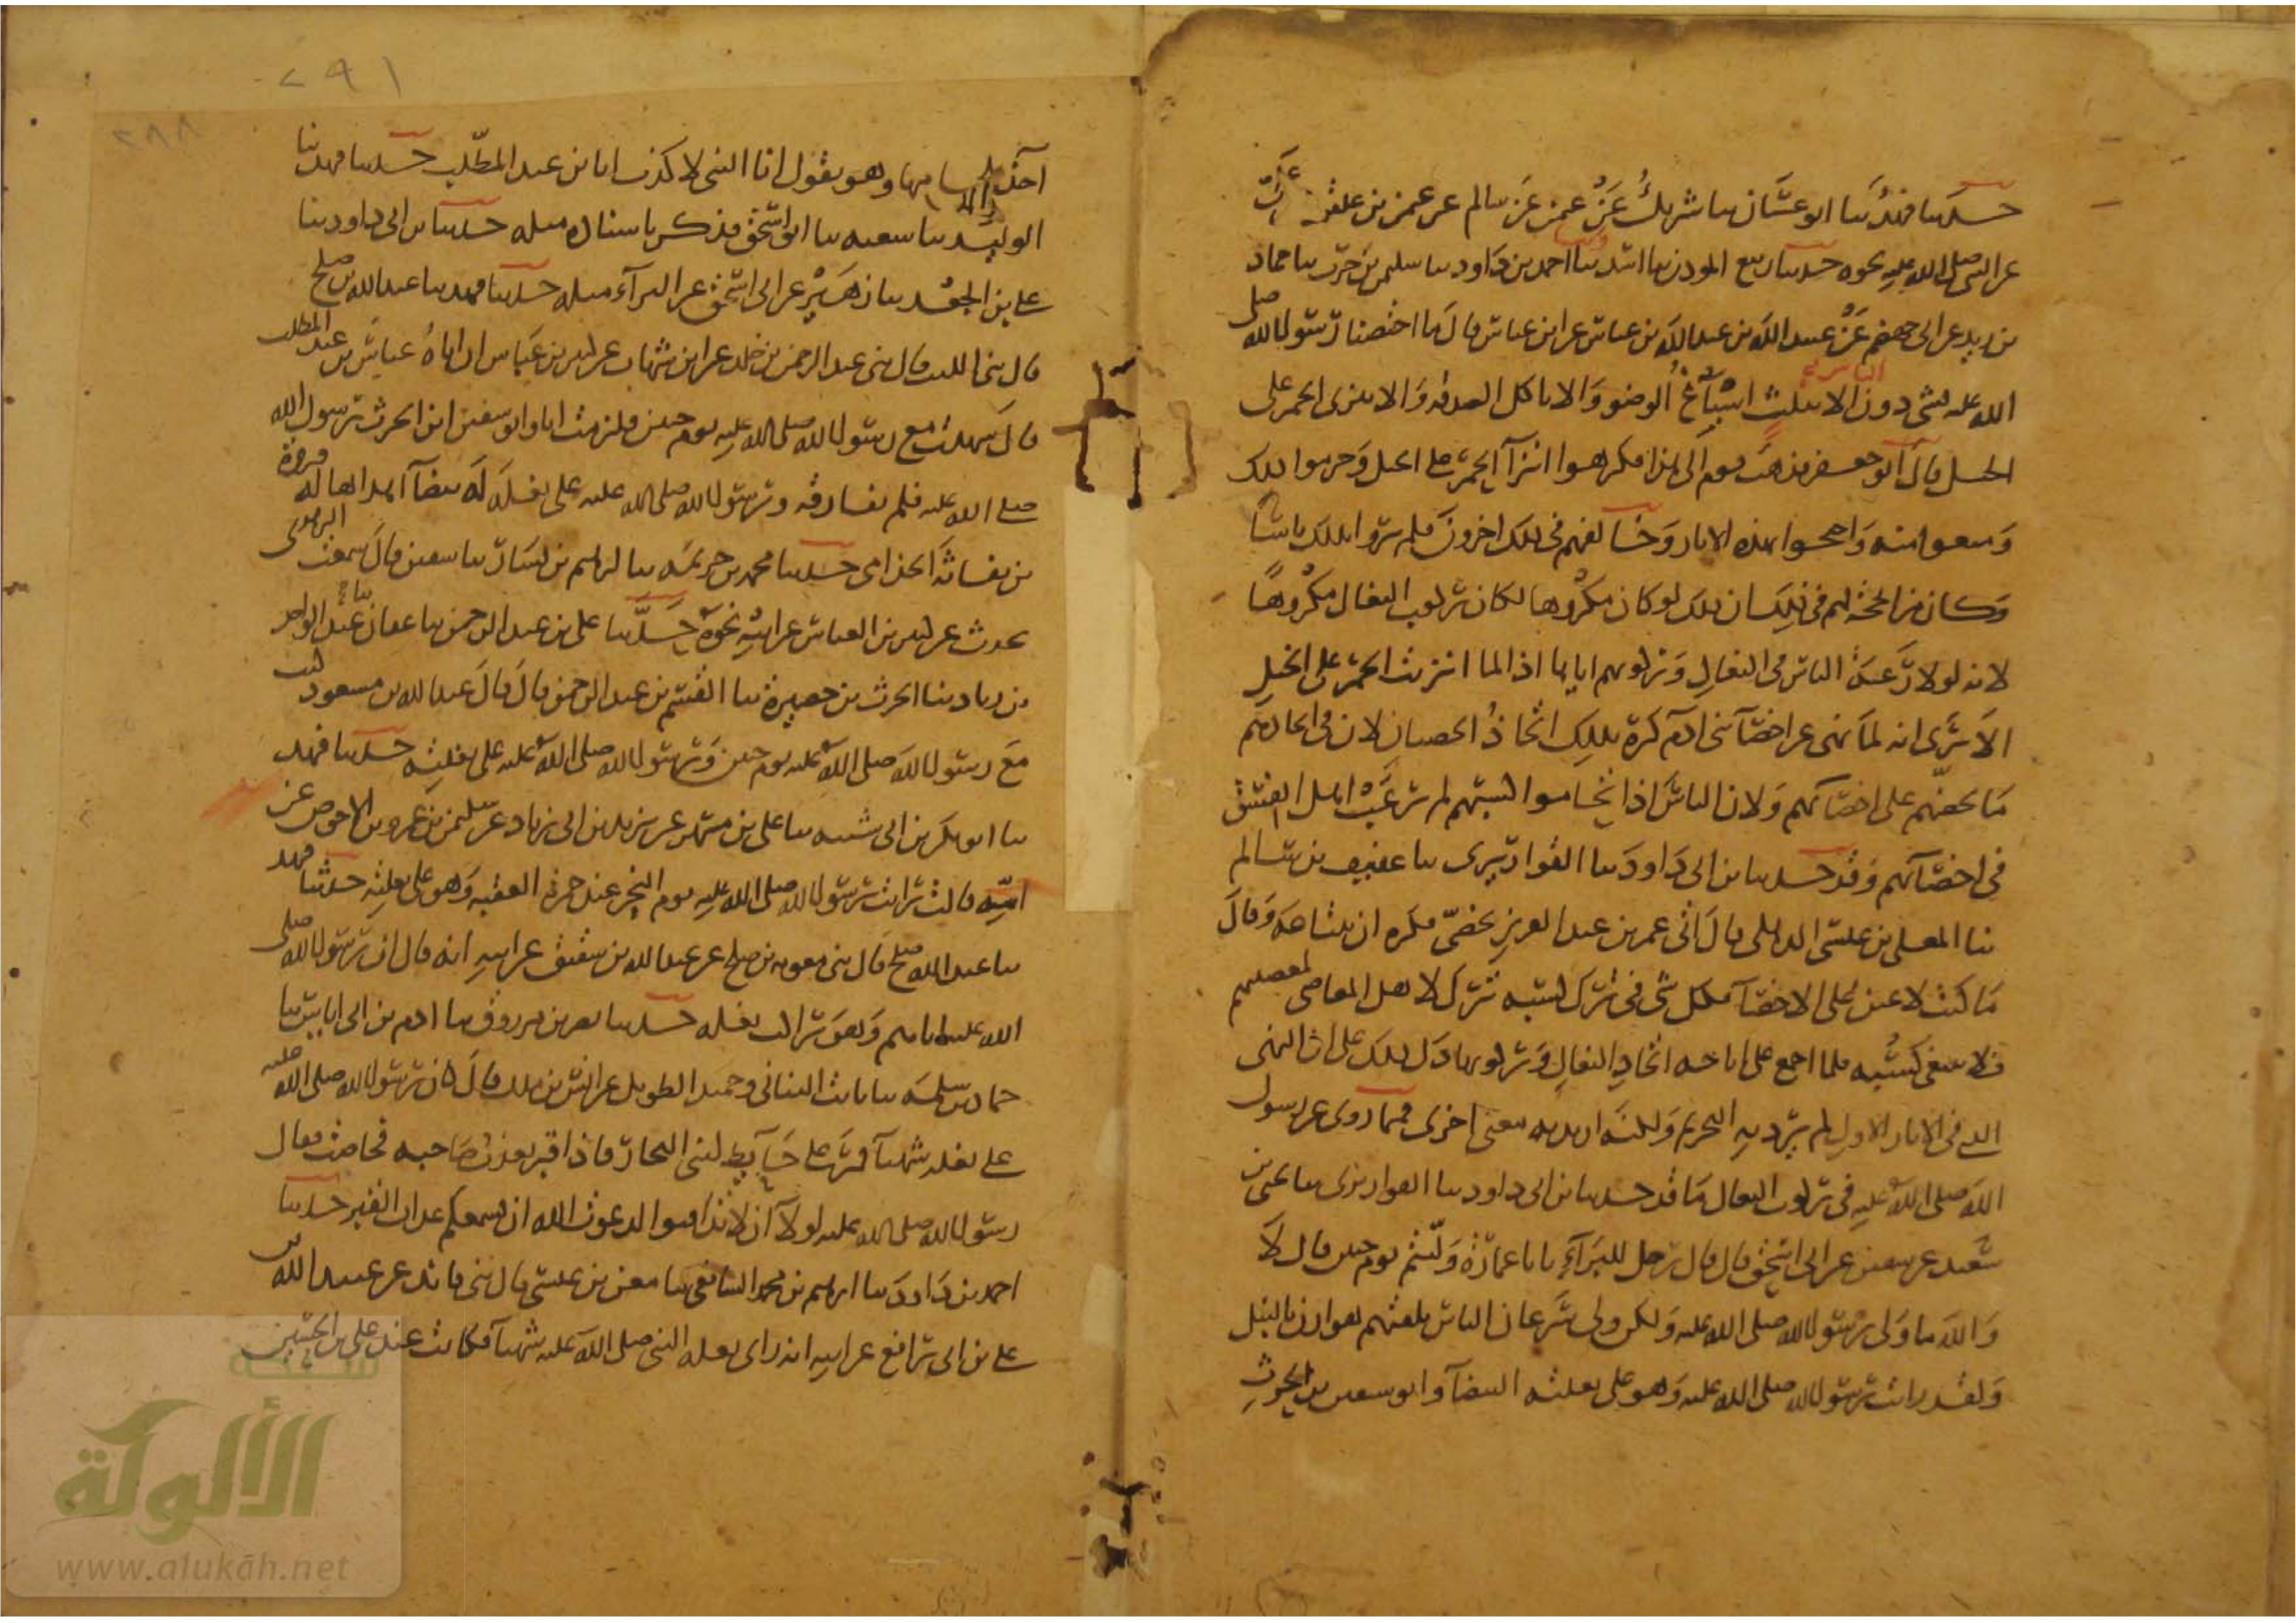 حدثنا فهد ثنا ابو غسان ثنا شريك عن عثمن عن سالم عن علي بن علقمة عن علي
عن النبي صلى الله عليه نحوه حدثنا ربيع المؤذن ثنا اسد وثنا احمد بن داود ثنا سليمن بن حرب ثنا حماد
بن زيد عن ابي جهضم عن عبيد الله بن عبد الله بن عباس عن ابن عباس قال ما اختصنا رسول الله صلى
الله عليه بشي دون الناس الا بثلث اسباغ الوضو والا ناكل الصدقة والا ننزي الحمر على
الخيل قال ابو جعفر فذهب قوم الى هذا فكرهوا انزآ الحمر على الخيل وحرموا ذلك
ومنعوا منه واحتجوا بهذه الاثار وخالفهم في ذلك اخرون فلم يروا بذلك باسا
وكان من الحجة لهم في ذلك ان ذلك لو كان مكروها لكان ركوب البغال مكروها
لانه لولا رغبة الناس في البغال وركوبهم اياها اذا لما انزئت الحمر على الخيل
الا ترى انه لما نهى عن اخصآ بني ادم كره بذلك اتخاذ الخصيان لان في اتخاذهم
ما يحضهم على اخصآئهم ولان الناس اذا تحاموا كسبهم لم يرغب اهل الفسق
في اخصآئهم وقد حدثنا بن ابي داود ثنا القواريري ثنا عفيف بن سالم
ثنا العلا بن عيسى الذهلي قال اتي عمر بن عبد العزيز بخصي فكره ان يبتاعه وقال
ما كنت لاعين على الاخصآ فكل شي في ترك كسبه ترك لاهل المعاصي لمعصيتهم
فلا ينبغي كسبه فلما اجمع على اباحة اتخاذ البغال وركوبها دل ذلك على ان النهي
الذي في الاثار الاول لم يرد به التحريم ولكنه اريد به معنى اخر فمما روي عن رسول
الله صلى الله عليه في ركوب البغال ما قد حدثنا بن ابي داود ثنا القواريري ثنا يحيى بن
سعيد عن سفين عن ابي اسحق قال قال رجل للبرآء يا ابا عمارة وليتم يوم حنين قال لا
والله ما ولى رسول الله صلى الله عليه ولكن ولى سرعان الناس تلقتهم هوازن بالنبل
ولقد رايت رسول الله صلى الله عليه وهو على بغلته البيضآ وابو سفين بن الحرث
آخذ بلجامها وهو يقول انا النبي لا كذب انا بن عبد المطلب حدثنا فهد ثنا
ابو الوليد ثنا شعبه ثنا ابو اسحق فذكر باسناده مثله حدثنا بن ابي داود ثنا
علي بن الجعد ثنا زهير عن ابي اسحق عن البرآء مثله حدثنا فهد ثنا عبد الله بن صلح
قال ثني الليث قال ثني عبد الرحمن بن خلد عن ابن شهاب عن كثير بن عباس ان اباه عباس بن عبد المطلب
قال شهدت مع رسول الله صلى الله عليه يوم حنين فلزمت انا وابو سفين ابن الحرث رسول الله
صلى الله عليه فلم نفارقه ورسول الله صلى الله عليه على بغلة له بيضآ اهداها له فروة
بن نفاثة الجذامي حدثنا محمد بن خزيمة ثنا ابرهيم بن بشار ثنا سفين قال سمعت الزهري
يحدث عن كثير بن العباس عن ابيه نحوه حدثنا علي بن عبد الرحمن ثنا عفان ثنا عبد الواحد
بن زياد ثنا الحرث بن حصيرة ثنا القسم بن عبد الرحمن قال قال عبد الله بن مسعود كنت
مع رسول الله صلى الله عليه يوم حنين ورسول الله صلى الله عليه على بغلته حدثنا فهد
ثنا ابو بكر بن ابي شيبه ثنا علي بن مسهر عن يزيد بن ابي زياد عن سليمن بن عمرو بن الاحوص عن
امه قالت رايت رسول الله صلى الله عليه يوم النحر عند جمرة العقبه وهو على بغلته حدثنا فهد
ثنا عبد الله بن صلح قال ثني معويه بن صلح عن عبد الله بن شقيق عن ابيه انه قال ان رسول الله صلى
الله عليه اتاهم وهو راكب بغله حدثنا نصر بن مرزوق ثنا ادم بن ابي اياس ثنا
حماد بن سلمة ثنا ثابت البناني وحميد الطويل عن انس بن ملك قال كان رسول الله صلى الله عليه
على بغلة شهبآ فمر على حآيط لبني النجار فاذا قبر يعذب صاحبه فحاصت فقال
رسول الله صلى الله عليه لولا ان لا تدافنوا لدعوت الله ان يسمعكم عذاب القبر حدثنا
احمد بن داود ثنا ابرهيم بن محمد الشافعي ثنا معن بن عيسى قال ثني فائد عن عبيد الله بن
علي بن ابي رافع عن ابيه انه راى بغلة النبي صلى الله عليه شهبآ فكانت عند علي بن الحسين
٢٩١
٢٩٨
شبكة
الألوكة
www.alukah.net